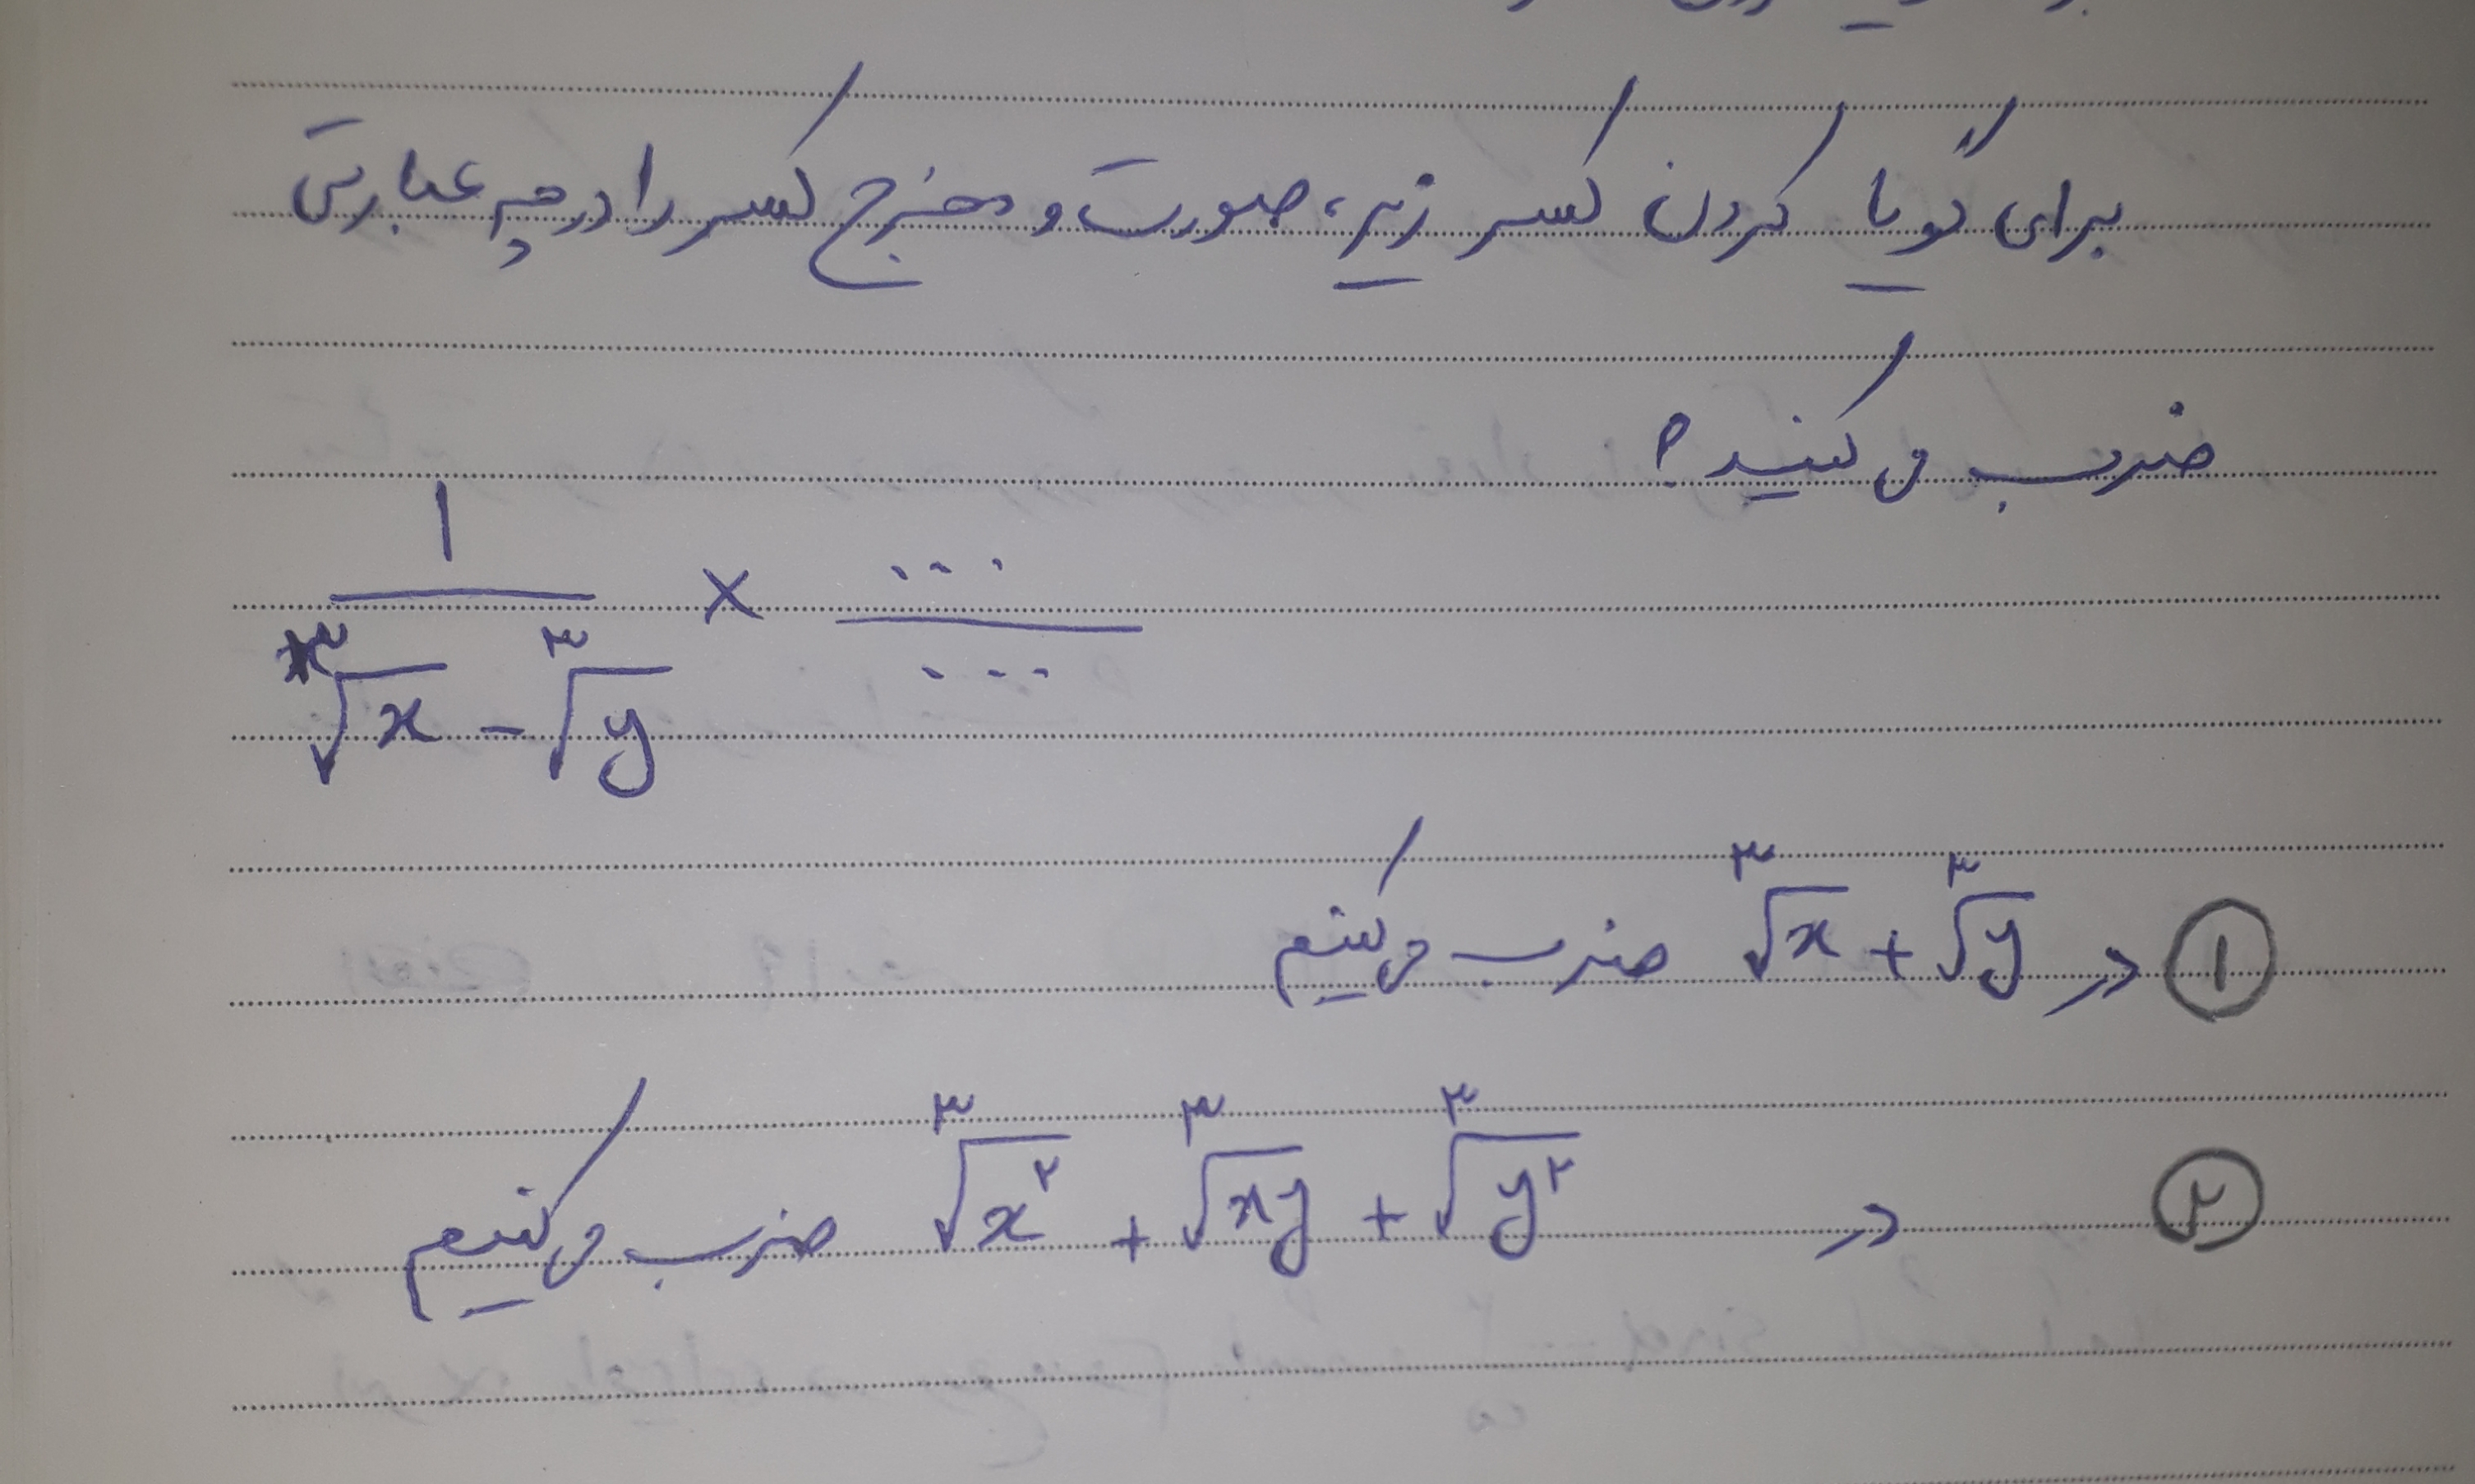 برای گویا کردن کسر زیر، صورت و مخرج کسر را در چه عبارتی
ضرب می کنید؟
۱ / (³√x - ³√y) × ... / ...
۱ در ³√x + ³√y ضرب می کنیم
۲ در ³√x² + ³√xy + ³√y² ضرب می کنیم